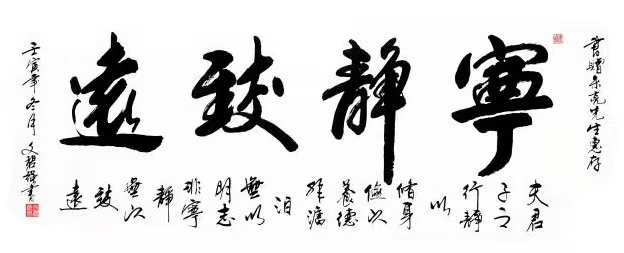 書贈亮先生惠存
寧靜致遠
夫君
子之
行靜
以
脩身
儉以
養德
非澹
泊
無以
明志
非寧
靜
無以
致
遠
壬寅年冬月文書